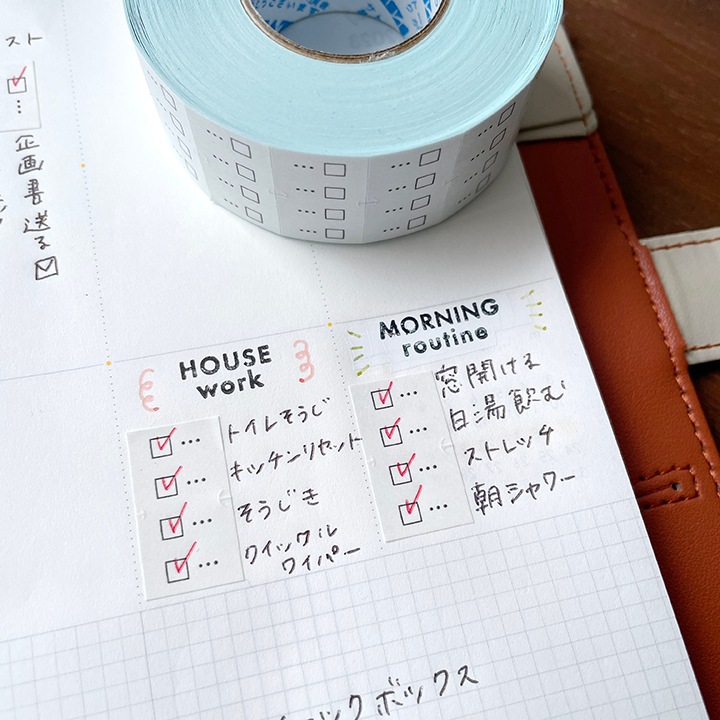 スト
企画書送る
HOUSE
work
トイレそうじ
キッチンリセット
そうじき
クイックル
ワイパー
MORNING
routine
窓開ける
白湯飲む
ストレッチ
朝シャワー
ックボックス